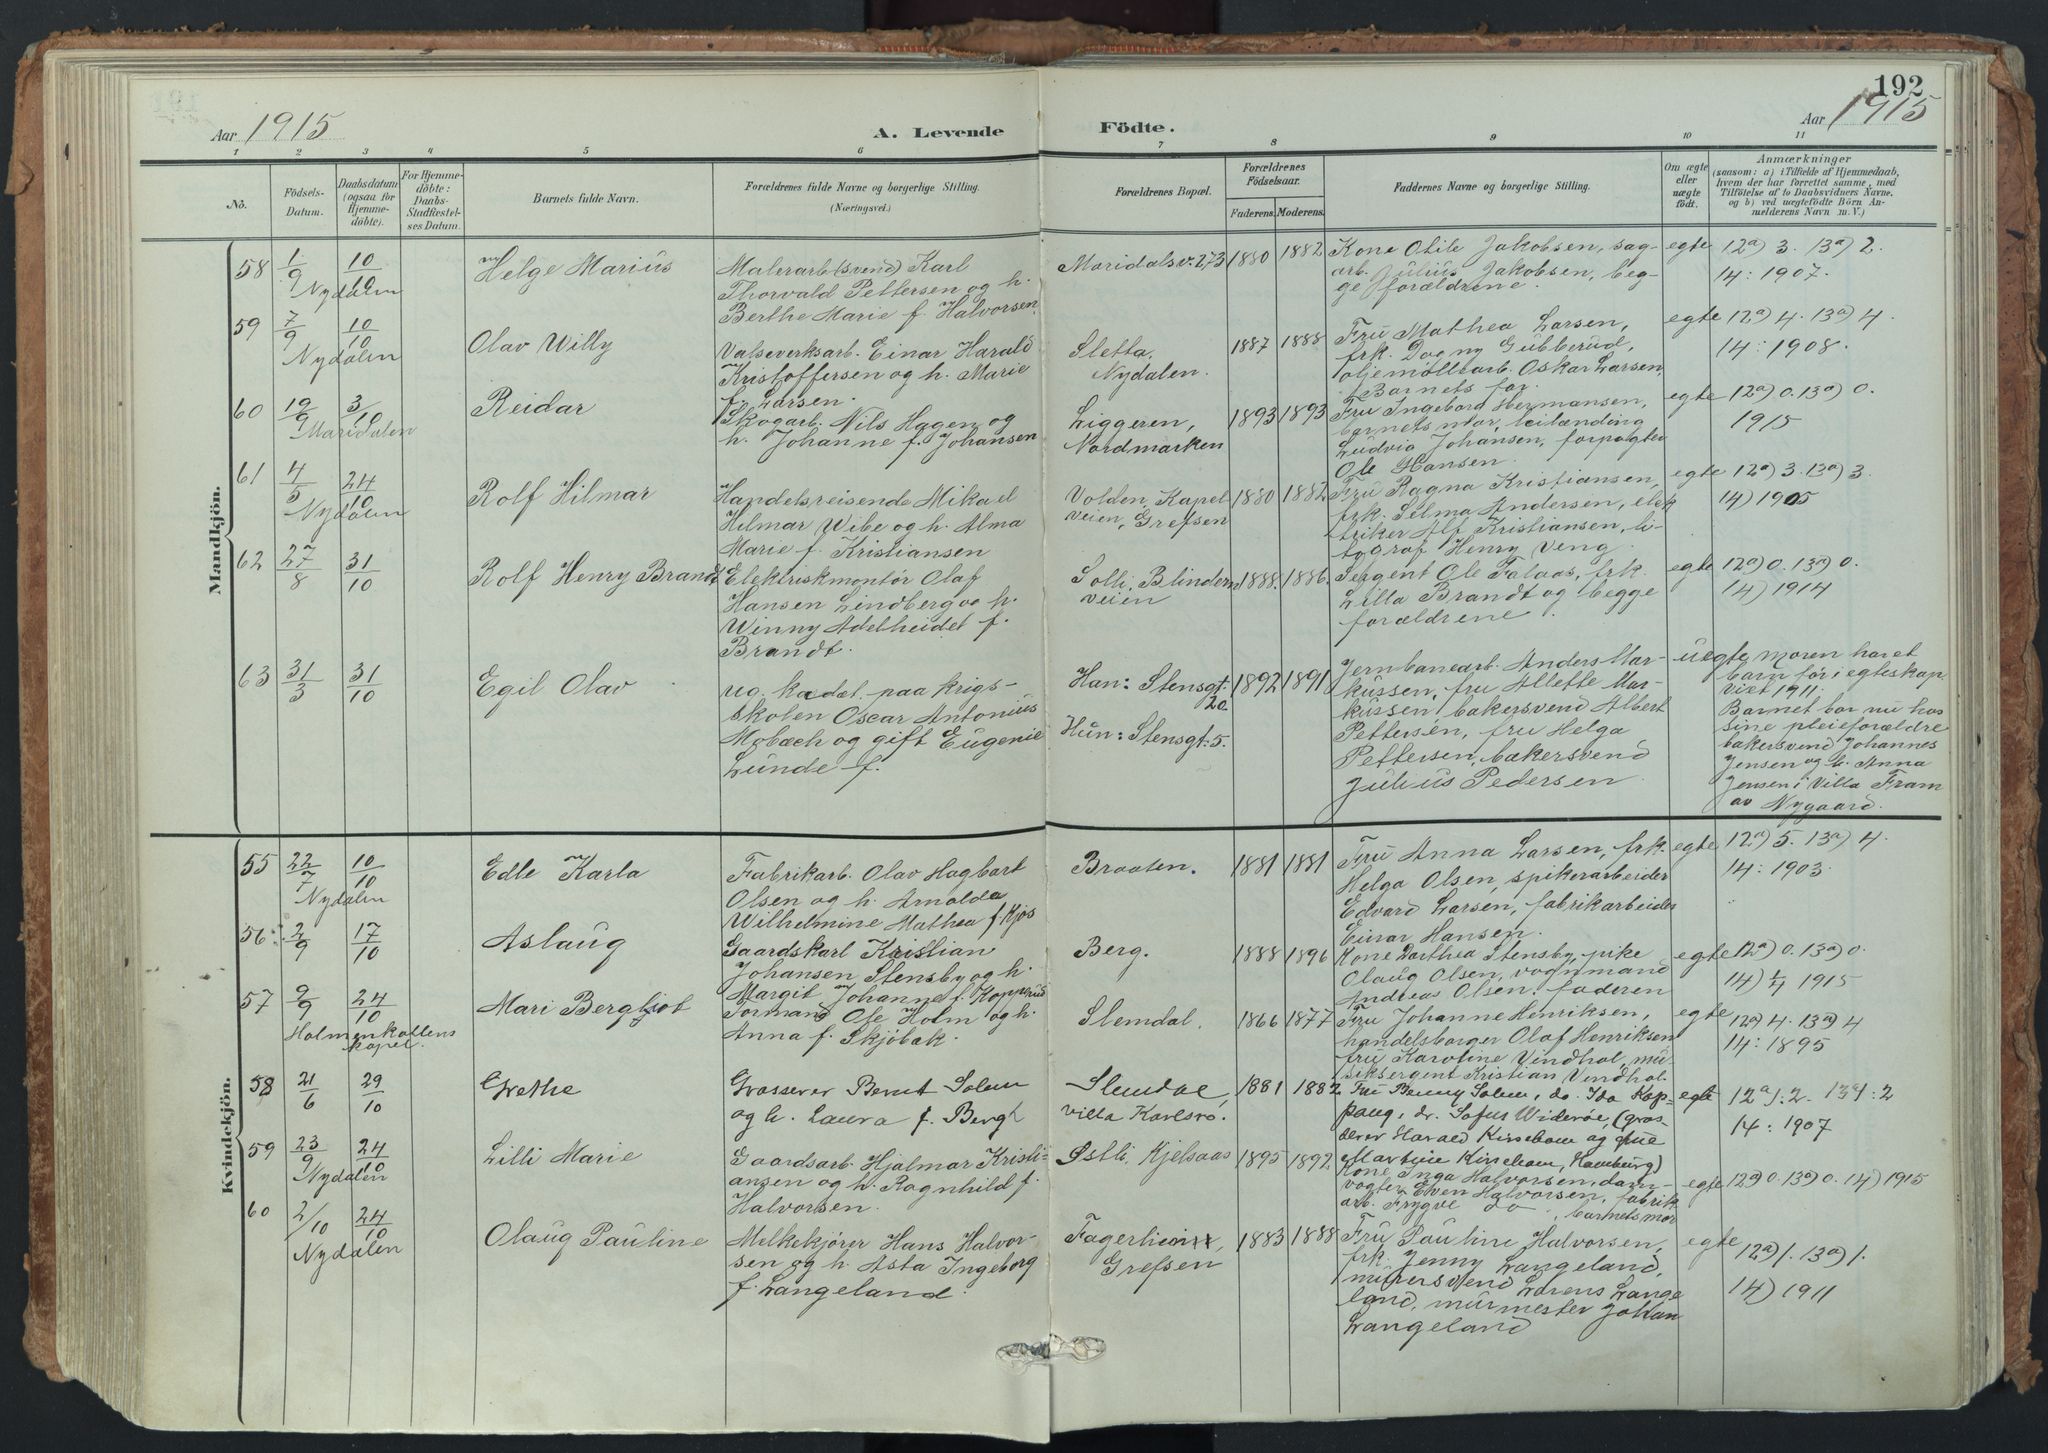 192
Aar 1915
A. Levende
Födte.
Aar 1915
1 2 3 4 5 6 7 8 9 10 11
No.
Födsels-
Datum.
Daabsdatum
(ogsaa for
Hjemme-
döbte).
For Hjemme-
döbte:
Daabs-
Stadfæstel-
ses Datum.
Barnets fulde Navn.
Forældrenes fulde Navne og borgerlige Stilling.
(Næringsvei.)
Forældrenes Bopæl.
Forældrenes
Födselsaar.
Faderens. Moderens.
Faddernes Navne og borgerlige Stilling.
Om ægte
eller
uægte
födt.
Anmærkninger
(saasom: a) i Tilfælde af Hjemmedaab,
hvem der har forrettet samme, med
Tilföielse af to Daabsvidners Navne.
og b) ved uægtefödte Börn An-
melderens Navn m. V.)
Mandkjön.
58 1/9 10/10 Nydalen
Helge Marius
Malerarb (svend) Karl
Thorvald Pettersen og h.
Berthe Marie f. Halvorsen.
Maridalsv. 273
1880 1882
Kone Otile Jakobsen, sag-
arb. Julius Jakobsen, beg-
ge forældrene.
egte
12a) 3. 13a) 2.
14: 1907.
59 7/9 10/10 Nydalen
Olav Willy
Valseverksarb. Einar Harald
Kristoffersen og h. Marie
f. Larsen.
Sletta,
Nydalen.
1887 1888
Fru Mathea Larsen,
frk. Dagny Gubberud,
oljemöllearb. Oskar Larsen,
Barnets far.
egte
12a) 4. 13a) 4.
14: 1908.
60 19/9 3/10 Maridalen
Reidar
Skogarb. Nils Hagen og
h. Johanne f. Johansen
Liggeren,
Nordmarken
1893 1893
Fru Ingeborg Hermansen,
barnets mor, leilending
Ludvig Johansen, forpagter
Ole Hansen.
egte
12a) 0. 13a) 0.
1915
61 4/5 24/10 Nydalen
Rolf Hilmar
Handelsreisende Mikael
Hilmar Wibe og h. Alma
Marie f. Kristiansen
Volden, Kapel
veien, Grefsen
1880 1882
Fru Ragna Kristiansen,
frk. Selma Andersen, elek
triker Alf Kristiansen, ty-
pograf Henry Veng.
egte
12a) 3. 13a) 3.
14) 1905
62 27/8 31/10
Rolf Henry Brandt
Elektriskmontör Olaf
Hansen Lindberg og h.
Winny Adelheidet f.
Brandt.
Solli, Blindern
veien
1888. 1886.
Sergent Ole Falaas, frk.
Lilla Brandt og begge
forældrene.
egte
12a) 0. 13a) 0.
14) 1914
63 31/3 31/10
Egil Olav
ug. kadet paa krigs-
skolen Oscar Antonius
Mobæch og gift Eugenie
Lunde f.
Han: Stensgt.
20.
Hun: Stensgt. 5.
1892 1891
Jernbanearb. Anders Mar-
kussen, fru Allette Mar-
kussen, bakersvend Albert
Pettersen, fru Helga
Pettersen, bakersvend
Julius Pedersen.
uegte
moren har et
barn för i egteskap
viet 1911.
Barnet bor nu hos
sine pleieforældre
bakersvend Johannes
Jensen og h. Anna
Jensen i Villa Fram
av Nygaard.
Kvindekjön.
55 22/7 10/10 Nydalen
Edle Karla
Fabrikarb. Olav Hagbart
Olsen og h. Arnolda
Wilhelmine Mathea f. Kjos
Braaten.
1881 1881
Fru Anna Larsen, frk.
Helga Olsen, spikerarbeider
Edvard Larsen, fabrikarbeider
Einar Hansen.
egte
12a) 5. 13a) 4.
14: 1903.
56 2/9 17/10
Aslaug
Gaardskarl Kristian
Johansen Stensby og h.
Margit Johanne f. Kopperud
Berg.
1888 1896
Kone Darthea Stensby, pike
Olaug Olsen, vognmand
Andreas Olsen, faderen
egte
12a) 0. 13a) 0
14) 1/4 1915
57 9/9 24/10 Holmenkollens
kapel.
Mari Bergljot
Formand Ole Holm og h.
Anna f. Skjöbæk.
Slemdal.
1866 1877
Fru Johanne Henriksen,
handelsborger Olaf Henriksen
fru Karoline Vindhol, mu-
siksergent Kristian Vindhol.
egte
12a) 4. 13a) 4
14: 1895
58 21/6 29/10
Grethe
Grosserer Bernt Solum
og h. Laura f. Bergh
Slemdal,
villa Karlsro.
1881 1882
Fru Benny Solum, do. Ida Kop-
pang, dr. Sofus Wideröe, (gros-
serer Harald Kirsebom og frue
Martine Kirsebom, Hamburg)
egte
12a): 2. 13a): 2
14: 1907
59 23/9 24/10 Nydalen
Lilli Marie
Gaardsarb. Hjalmar Kristi-
ansen og h. Ragnhild f.
Halvorsen.
Østli, Kjelsaas
1895 1892
Kone Inga Halvorsen, dam-
vogter Even Halvorsen, fabrik
arb. Trygve do, barnets mor
egte
12a) 0. 13a) 0. 14) 1915
60 2/10 24/10 Nydalen
Olaug Pauline
Melkekjörer Hans Halvor-
sen og h. Asta Ingeborg
f. Langeland.
Fagerheim,
Grefsen
1883 1888
Fru Pauline Halvorsen,
frk. Jenny Langeland,
murersvend Lorens Lange
land, murmester Johan
Langeland
egte
12a) 1. 13a) 1.
14) 1911